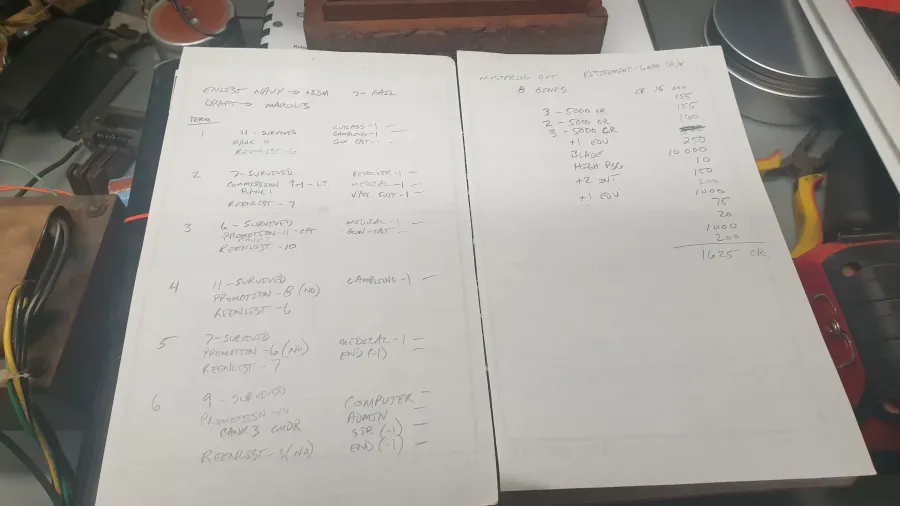 ENLIST NAVY → +3DM 7- FAIL
DRAFT → MARINES
TERM
1 11 - SURVIVED CUTLASS - 1
RANK 0 GAMBLING - 1
REENLIST - 6 GUN CBT - 1
2 7 - SURVIVED REVOLVER - 1
COMMISSION 9 - 1 - LT. MEDICAL - 1
RANK 1 VACC SUIT - 1
REENLIST - 7
3 6 - SURVIVED MEDICAL - 1
PROMOTION - 11 - CPT GUN - CBT -
REENLIST - 10
4 11 - SURVIVED GAMBLING - 1
PROMOTION - 8 (NO)
REENLIST - 6
5 7 - SURVIVED MEDICAL - 1
PROMOTION - 6 (NO) END (-1)
REENLIST - 7
6 9 - SURVIVED COMPUTER
PROMOTION - 11 ADMIN
RANK 3 CMDR STR (-1)
REENLIST - 3 (NO) END (-1)
MUSTERING OUT RETIREMENT - 6000 CR/Y
8 BENES CR 15 000
3 - 5000 CR 155
2 - 5000 CR 155
3 - 5000 CR 100
+1 EDU 250
BLADE 10 000
HIGH PSG 10
+2 INT 150
200
+1 EDU 1000
75
20
1000
200
1625 CR